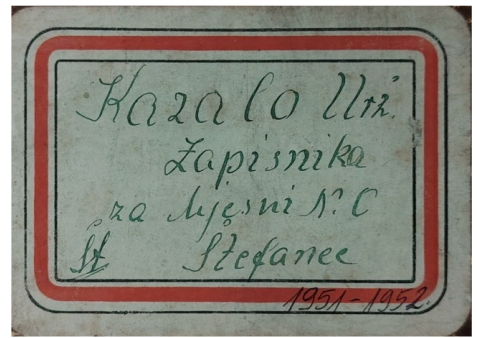 Kazalo Urž.
Zapisnika
za Mjesni N. O
Št Štefanec
1951-1952.